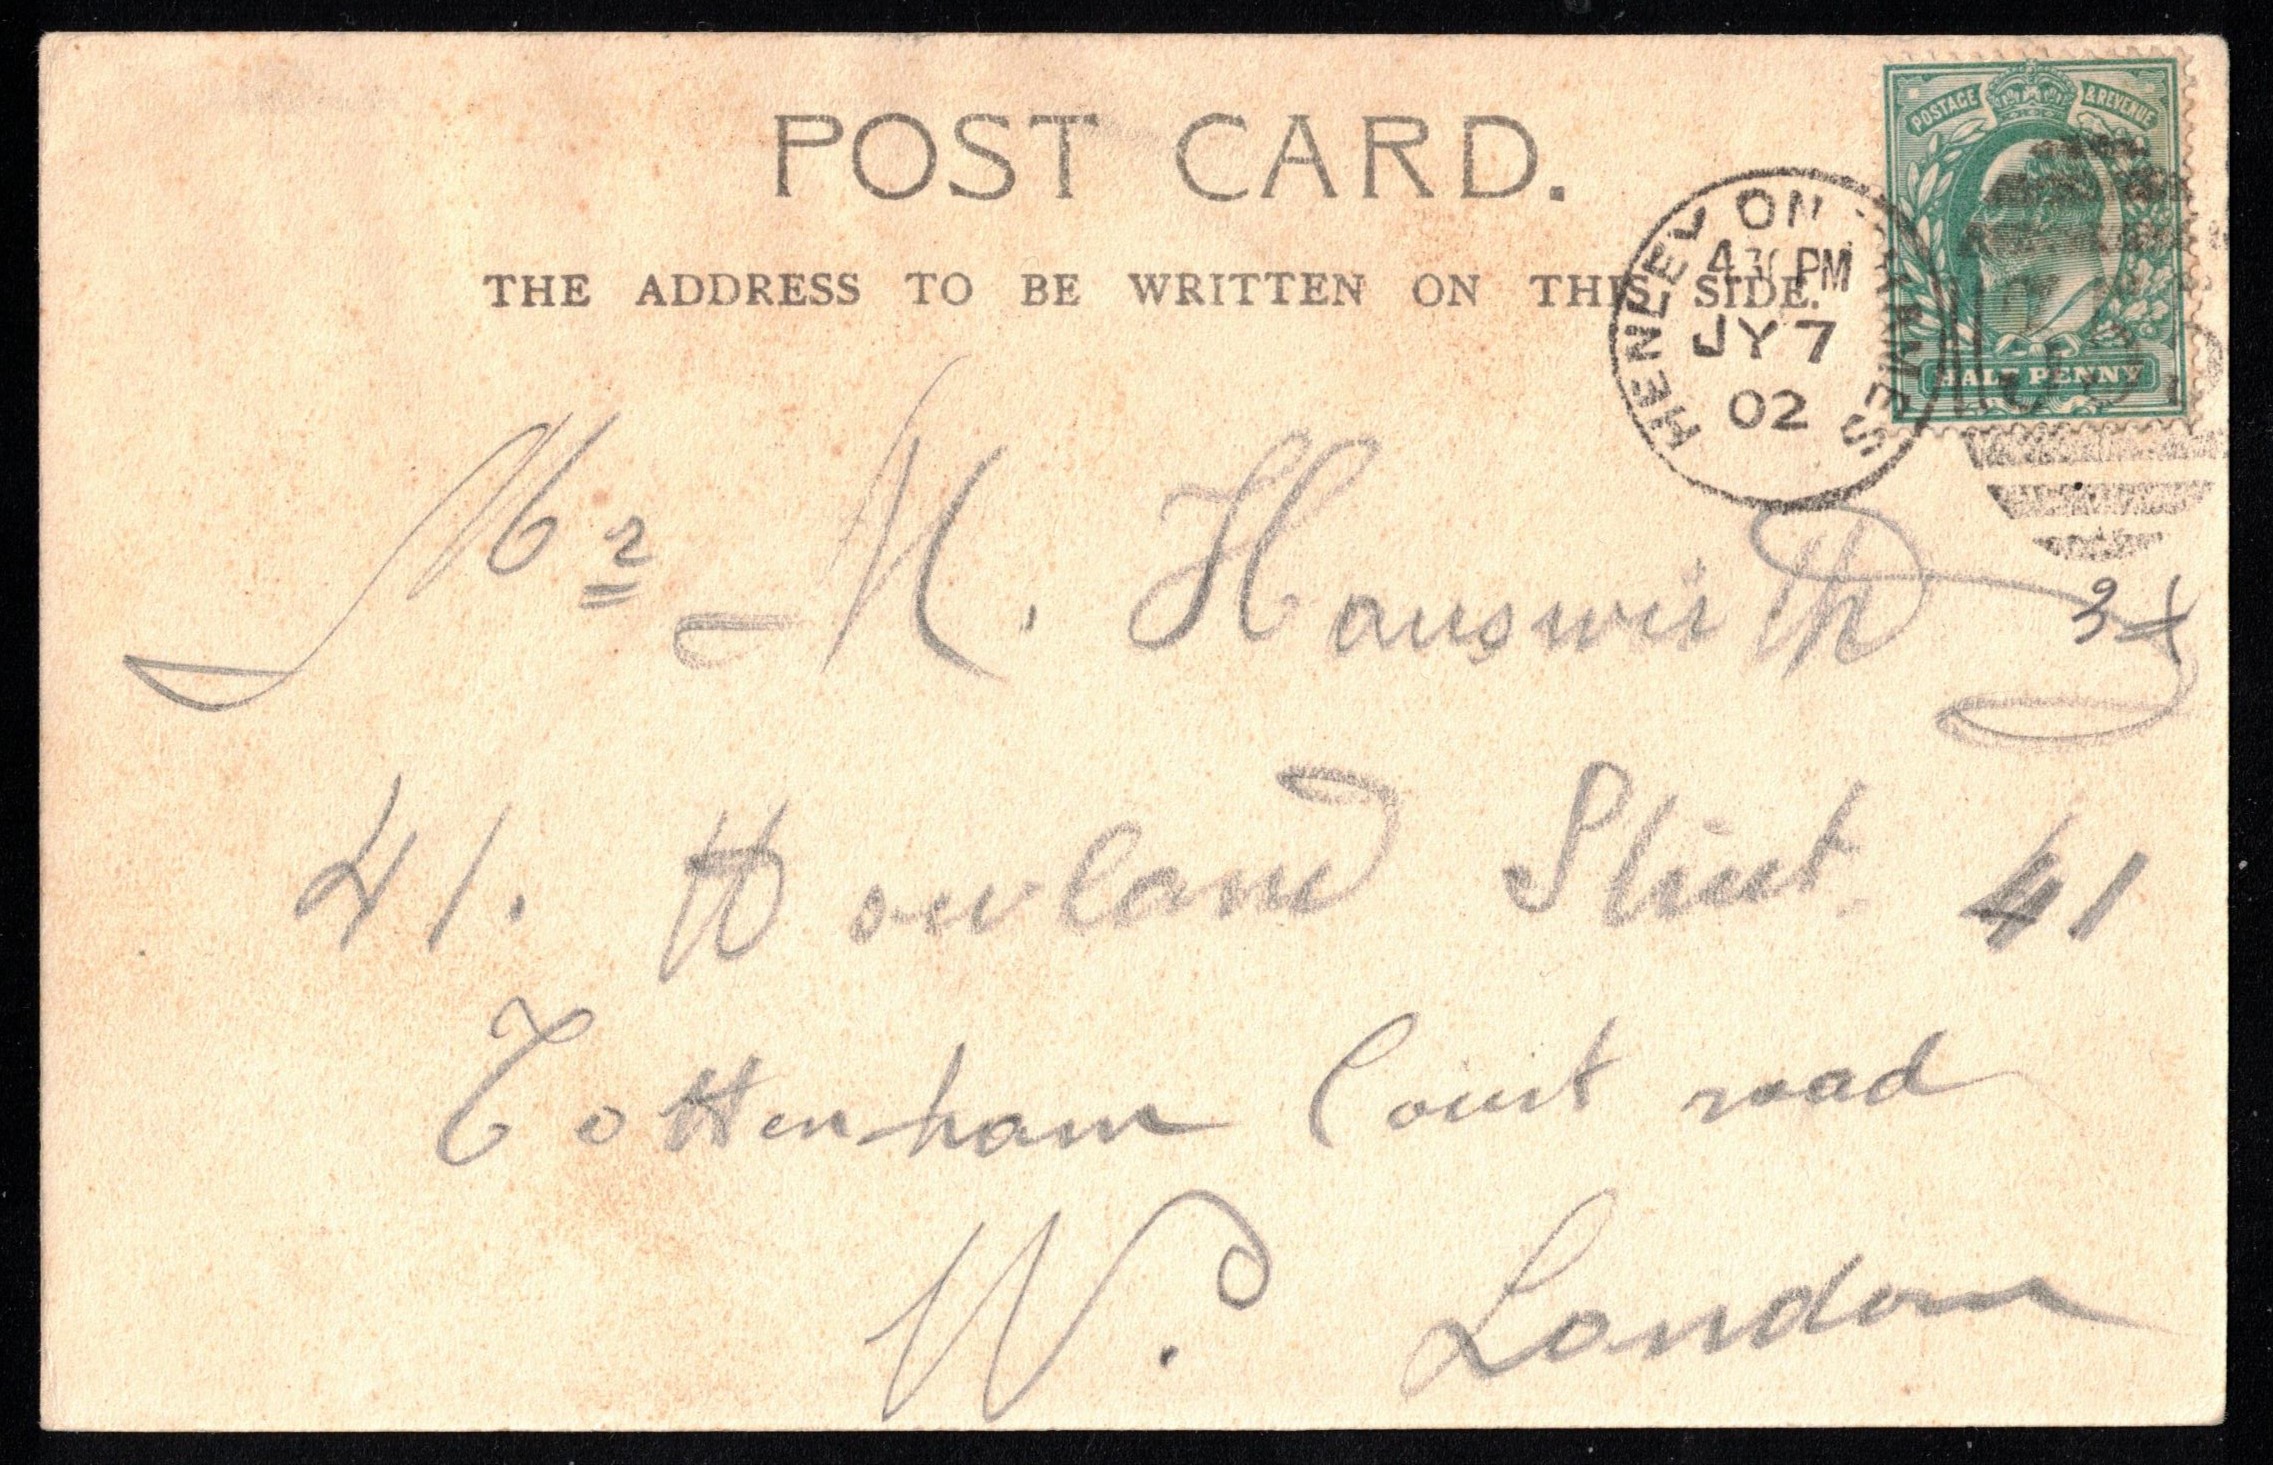 POST CARD.
THE ADDRESS TO BE WRITTEN ON THIS SIDE.
POSTAGE & REVENUE
HALF PENNY
HENLEY ON THAMES
4 30 PM
JY 7
02
Mr M. Hauswirth
41. Howland Street. 41
Tottenham Court road
W. London